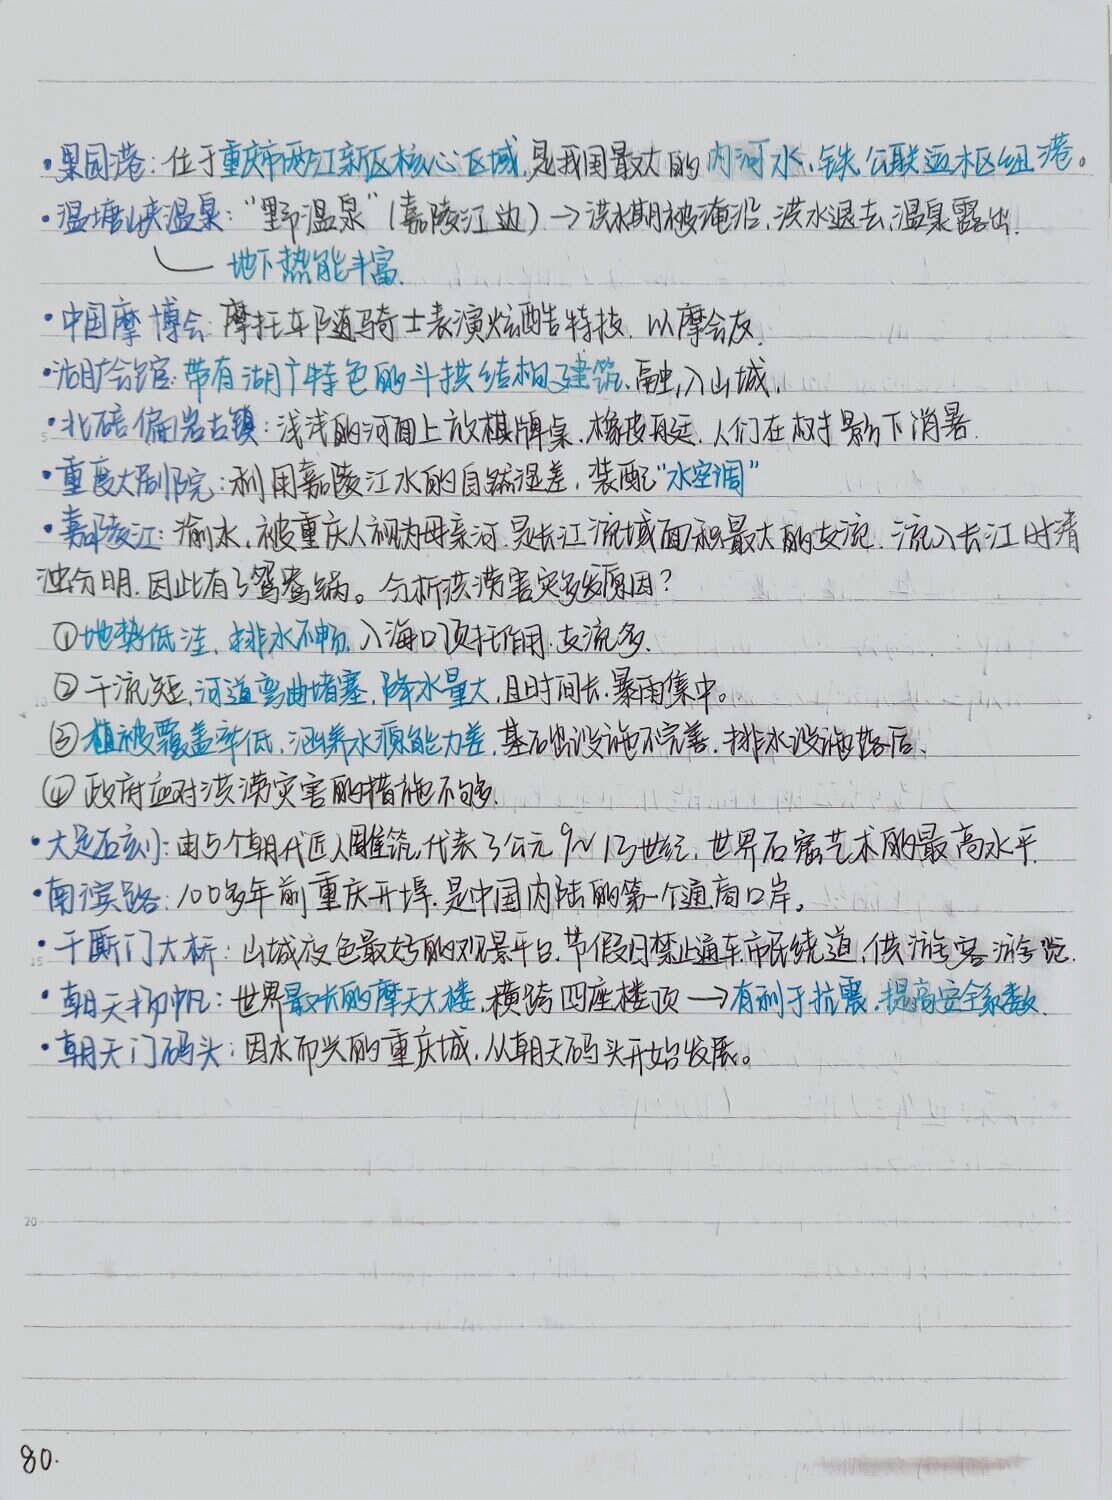 ·果园港：位于重庆市两江新区核心区域,是我国最大的内河水、铁、公联运枢纽港。
·温塘峡温泉：“野温泉”(嘉陵江边)→洪水期被淹没,洪水退去,温泉露出.
地下热能丰富.
·中国摩博会：摩托车随骑士表演炫酷特技,以摩会友.
·湖广会馆：带有湖广特色的斗拱结构建筑,融入山城.
·北碚偏岩古镇：浅浅的河面上放棋牌桌、橡皮艇,人们在树影下消暑.
·重庆大剧院：利用嘉陵江水的自然温差,装配“水空调”
·嘉陵江：渝水,被重庆人视为母亲河,是长江流域面积最大的支流,流入长江时清
浊分明,因此有了鸳鸯锅。分析洪涝害灾多发原因？
①地势低洼,排水不畅,入海口顶托作用,支流多.
②干流短,河道弯曲堵塞,降水量大,且时间长,暴雨集中。
③植被覆盖率低,涵养水源能力差,基础设施不完善,排水设施落后.
④政府应对洪涝灾害的措施不够.
·大足石刻：由5个朝代匠人雕筑,代表了公元9~13世纪,世界石窟艺术的最高水平.
·南滨路：100多年前重庆开埠,是中国内陆的第一个通商口岸。
·千厮门大桥：山城夜色最好的观景平台,节假日禁止通车,市民绕道,供游客游览.
·朝天扬帆：世界最长的摩天大楼,横跨四座楼顶→有利于抗震,提高安全系数.
·朝天门码头：因水而兴的重庆城,从朝天码头开始发展。
5
10
15
20
80.